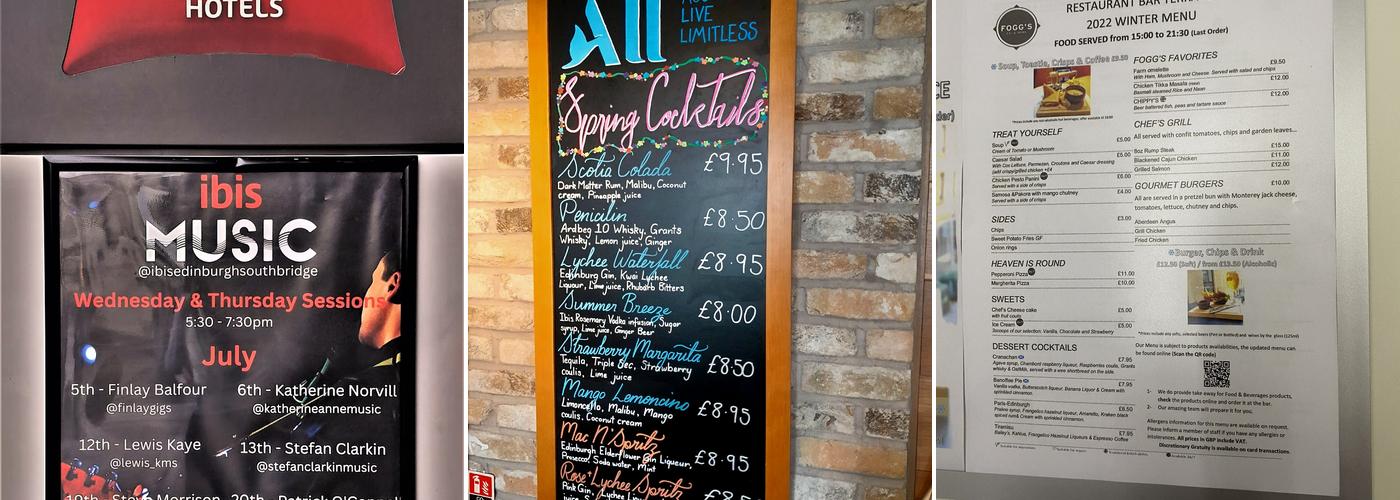 HOTELS
ibis
MUSIC
@ibisedinburghsouthbridge
Wednesday & Thursday Sessions
5:30 - 7:30pm
July
5th - Finlay Balfour
@finlaygigs
6th - Katherine Norvill
@katherineannemusic
12th - Lewis Kaye
@lewis_kms
13th - Stefan Clarkin
@stefanclarkinmusic
All
LIVE
LIMITLESS
Spring Cocktails
Scotia Colada £9.95
Dark Matter Rum, Malibu, Coconut
cream, Pineapple juice
Penicilin £8.50
Ardbeg 10 Whisky, Grants
Whisky, Lemon juice, Ginger
Lychee Waterfall £8.95
Edinburgh Gin, Kwai Lychee
Liqueur, Lime juice, Rhubarb Bitters
Summer Breeze £8.00
Ibis Rosemary Vodka infusion, Sugar
syrup, Lime juice, Ginger Beer
Strawberry Margarita £8.50
Tequila, Triple Sec, Strawberry
coulis, Lime juice
Mango Lemoncino £8.95
Limoncello, Malibu, Mango
coulis, Coconut cream
Mac N' Spritz £8.95
Edinburgh Elderflower Gin Liqueur,
Prosecco, Soda water, Mint
Rose Lychee Spritz
Pink Gin, Kwai Lychee
RESTAURANT BAR
2022 WINTER MENU
FOOD SERVED from 15:00 to 21:30 (Last Order)
FOGG'S
Soup, Toastie, Crisps & Coffee £9.50
TREAT YOURSELF
Soup £5.00
Cream of Tomato or Mushroom
Caesar Salad £5.00
With Cos Lettuce, Parmesan, Croutons and Caesar dressing
(add crispy/grilled chicken +£4
Chicken Pesto Panini £6.00
Served with a side of crisps
Samosa &Pakora with mango chutney £4.00
Served with a side of crisps
SIDES £3.00
Chips
Sweet Potato Fries GF
Onion rings
HEAVEN IS ROUND
Pepperoni Pizza £11.00
Margherita Pizza £10.00
SWEETS
Chef's Cheese cake £5.00
with fruit coulis
Ice Cream £5.00
3scoops of our selection: Vanilla, Chocolate and Strawberry
DESSERT COCKTAILS
Cranachan £7.95
Agave syrup, Chambord raspberry liqueur, Raspberries coulis, Grants
whisky & OatMilk, served with a wee shortbread on the side.
Banoffee Pie £7.95
Vanilla vodka, Butterscotch liqueur, Banana Liquor & Cream with
sprinkled cinnamon.
Paris-Edinburgh £6.50
Praline syrup, Frangelico hazelnut liqueur, Amaretto, Kraken black
spiced rum& Cream with sprinkled cinnamon.
Tiramisu £7.95
Bailey's, Kahlua, Frangelico Hazelnut Liqueurs & Espresso Coffee
FOGG'S FAVORITES
Farm omelette £9.50
With Ham, Mushroom and Cheese Served with salad and chips
Chicken Tikka Masala £12.00
Basmati steamed Rice and Naan
CHIPPY'S £12.00
Beer battered fish, peas and tartare sauce
CHEF'S GRILL
All served with confit tomatoes, chips and garden leaves...
8oz Rump Steak £15.00
Blackened Cajun Chicken £11.00
Grilled Salmon £12.00
GOURMET BURGERS £10.00
All are served in a pretzel bun with Monterey jack cheese,
tomatoes, lettuce, chutney and chips.
Aberdeen Angus
Grill Chicken
Fried Chicken
Burger, Chips & Drink
£12.50 (Soft) / from £13.50 (Alcoholic)
Our Menu is subject to products availabilities, the updated menu can
be found online (Scan the QR code)
1- We do provide take away for Food & Beverages products,
check the products online and order it at the bar.
2- Our amazing team will prepare it for you.
Allergens information for this menu are available on request.
Please inform a member of staff if you have any allergies or
intolerances. All prices in GBP include VAT.
Discretionary Gratuity is available on card transactions.